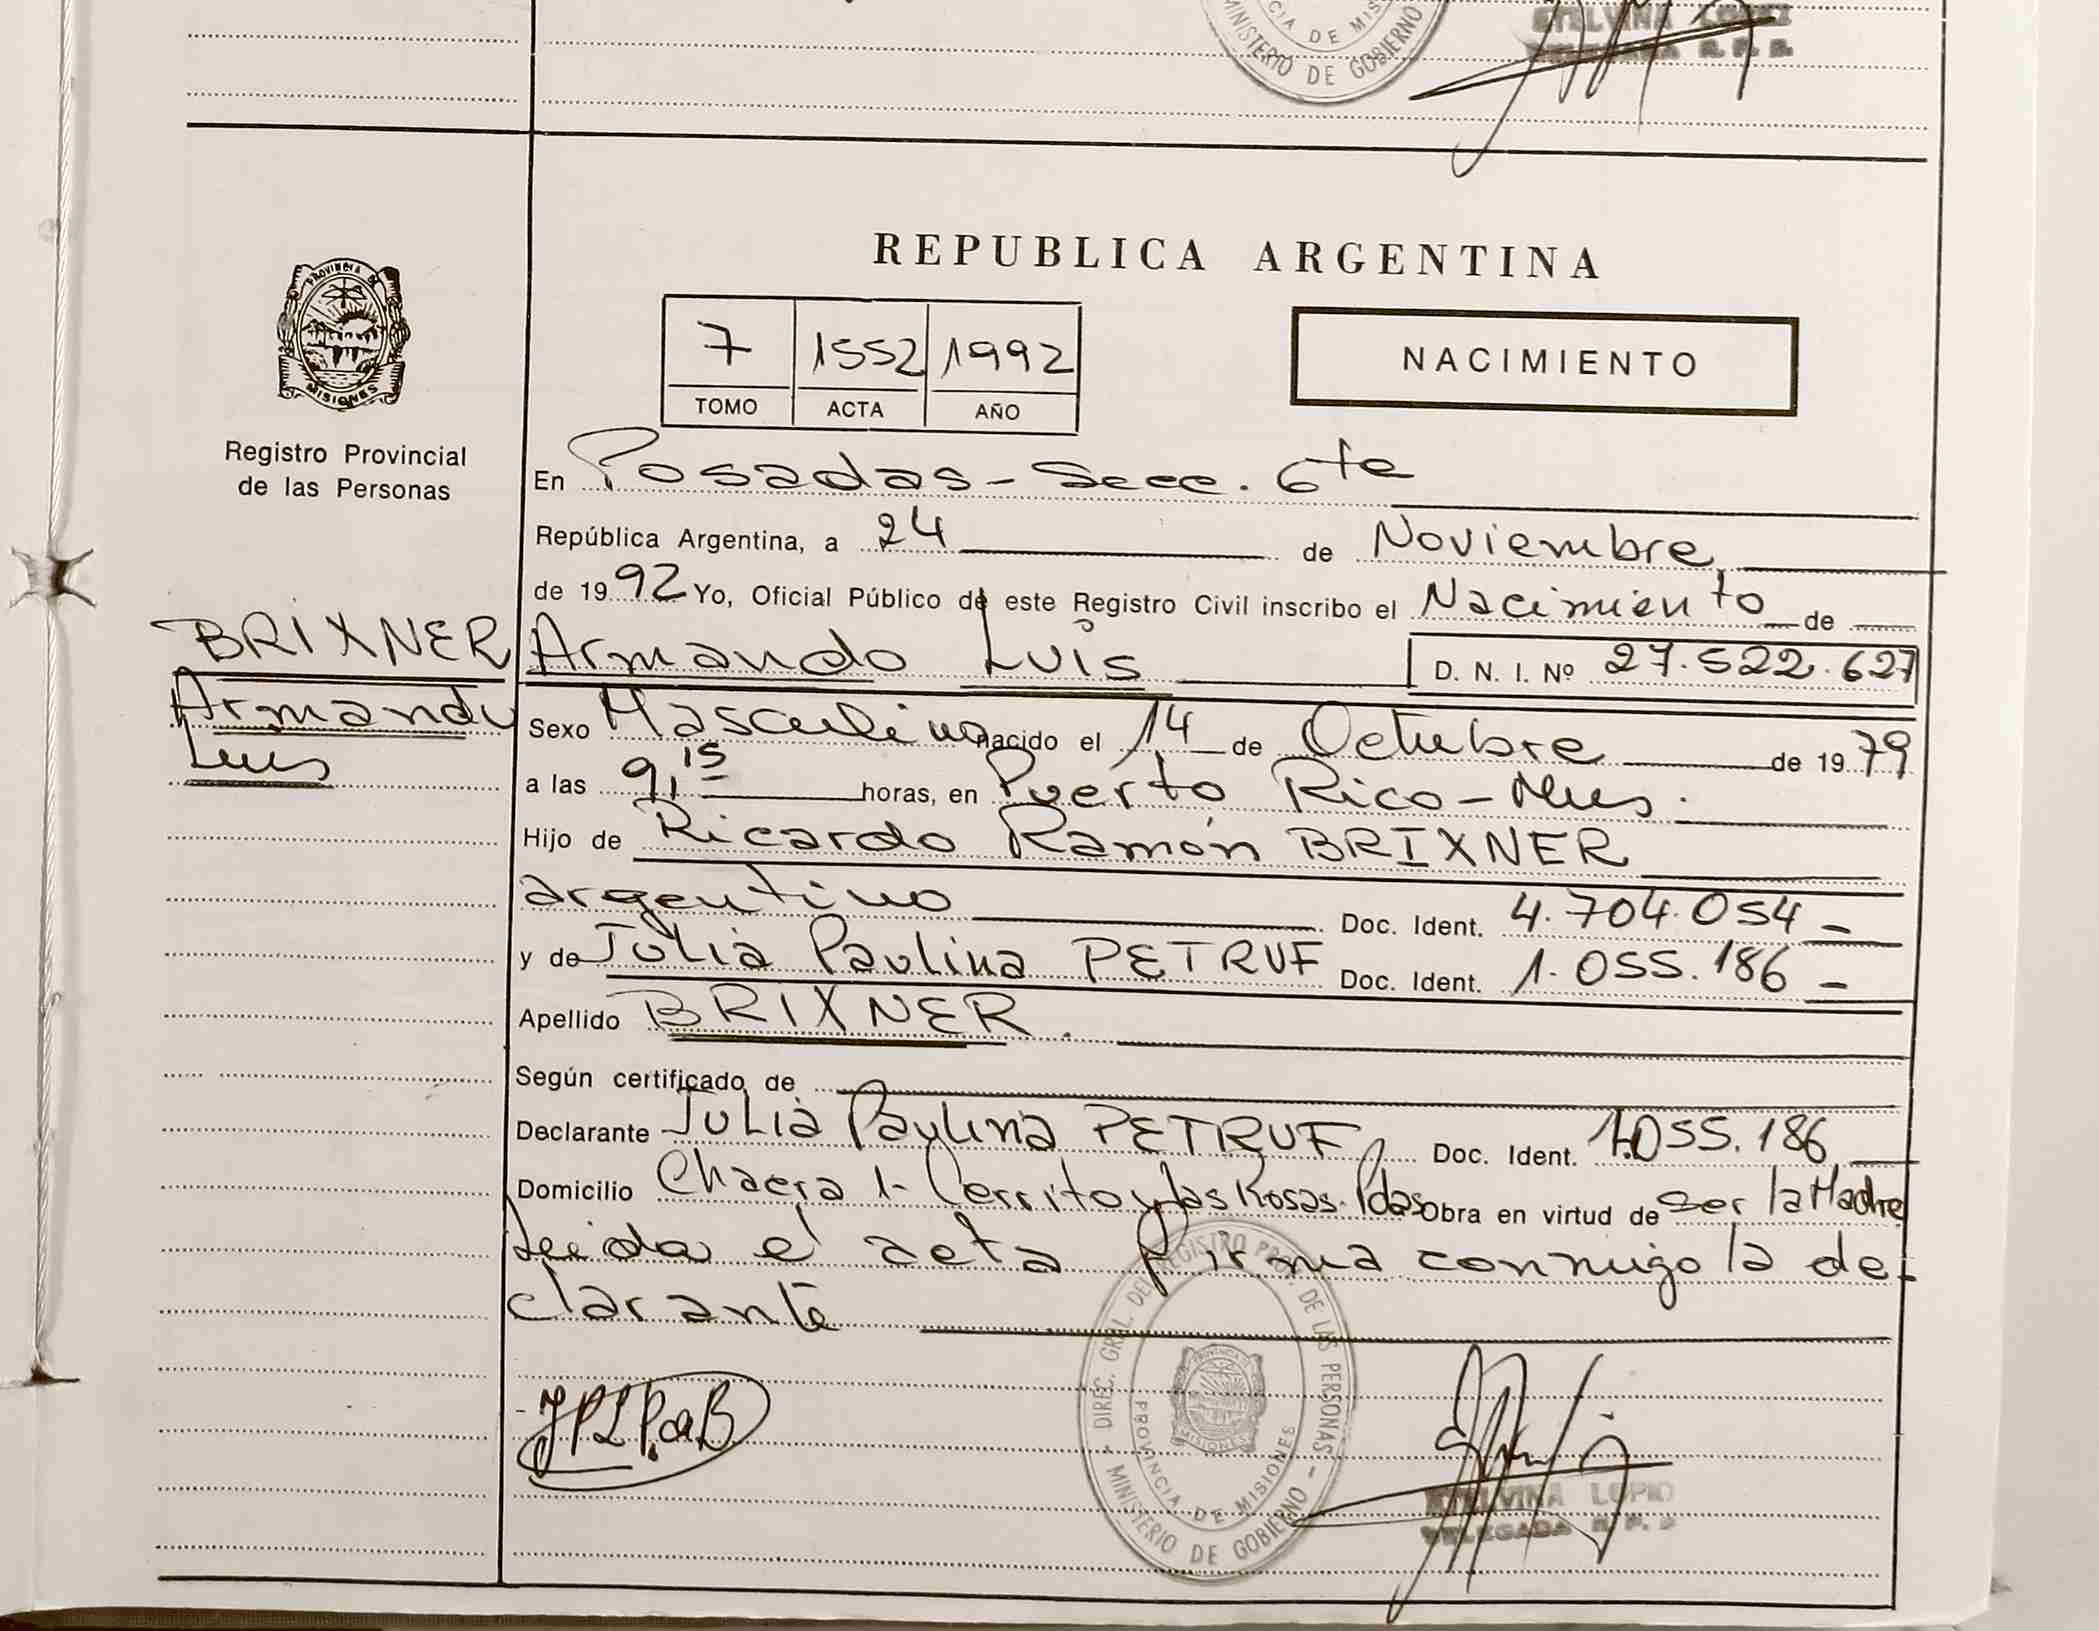 CIA DE MIS
MINISTERIO DE GOBIERNO
ETELVINA LOPEZ
DELEGADA R. P. P.
REPUBLICA ARGENTINA
PROVINCIA DE
MISIONES
Registro Provincial
de las Personas
7 1552 1992
TOMO ACTA AÑO
NACIMIENTO
En Posadas - Secc. 6ta
República Argentina, a 24 de Noviembre
de 1992 Yo, Oficial Público de este Registro Civil inscribo el Nacimiento de
BRIXNER
Armando
Luis
Armando Luis D. N. I. Nº 27.522.627
Sexo Masculino nacido el 14 de Octubre de 1979
a las 9,15 horas, en Puerto Rico - Mnes.
Hijo de Ricardo Ramón BRIXNER
argentino Doc. Ident. 4.704.054 -
y de Julia Paulina PETRUF Doc. Ident. 1.055.186 -
Apellido BRIXNER.
Según certificado de
Declarante Julia Paulina PETRUF Doc. Ident. 1.055.186
Domicilio Chacra 1- Cerrito y las Rosas- Pdas Obra en virtud de ser la Madre
Leida el acta firma conmigo la de-
clarante
DIREC. GRAL. DEL REGISTRO PROV. DE LAS PERSONAS -
MINISTERIO DE GOBIERNO
PROVINCIA DE MISIONES
PROVINCIA DE
MISIONES